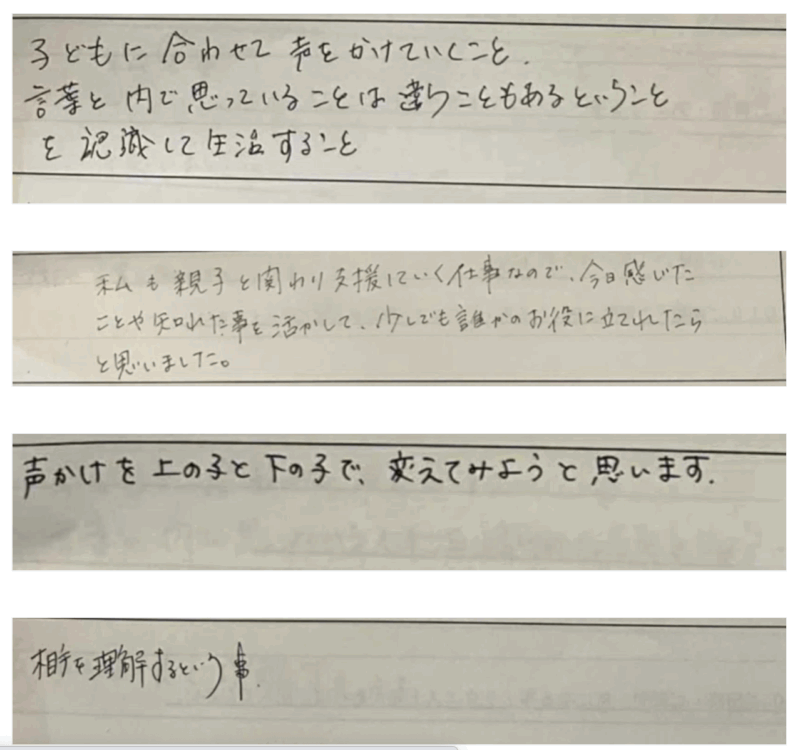 子どもに合わせて声をかけていくこと.
言葉と内で思っていることは違うこともあるということ
を認識して生活すること
私も親子と関わり支援していく仕事なので、今日感じた
ことや知れた事を活かして、少しでも誰かのお役に立てれたら
と思いました。
声かけを上の子と下の子で、変えてみようと思います.
相手を理解するという事.